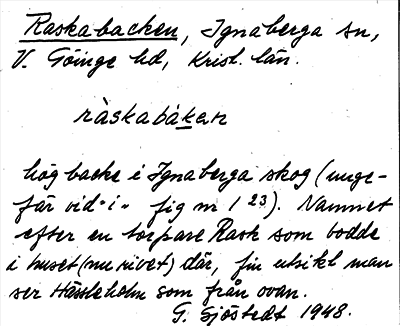 Raskabacken, Ignaberga sn,
V. Göinge hd, Krist. län.
ràskabákan
hög backe i Ignaberga skog (unge-
fär vid "i" fig nr 1 23). Namnet
efter en torpare Rask som bodde
i huset (nu rivet) där, fin utsikt man
ser Hässleholm som från ovan.
G. Sjöstedt 1948.